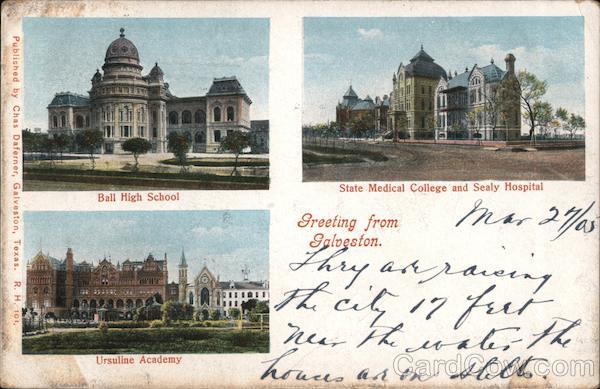 Published by Chas Daferner, Galveston, Texas. R. H. 101,
Ball High School
State Medical College and Sealy Hospital
Ursuline Academy
Greeting from
Galveston.
Mar 27/05
They are raising
the city 17 feet
near the water the
houses are on stelts
CardCow.com